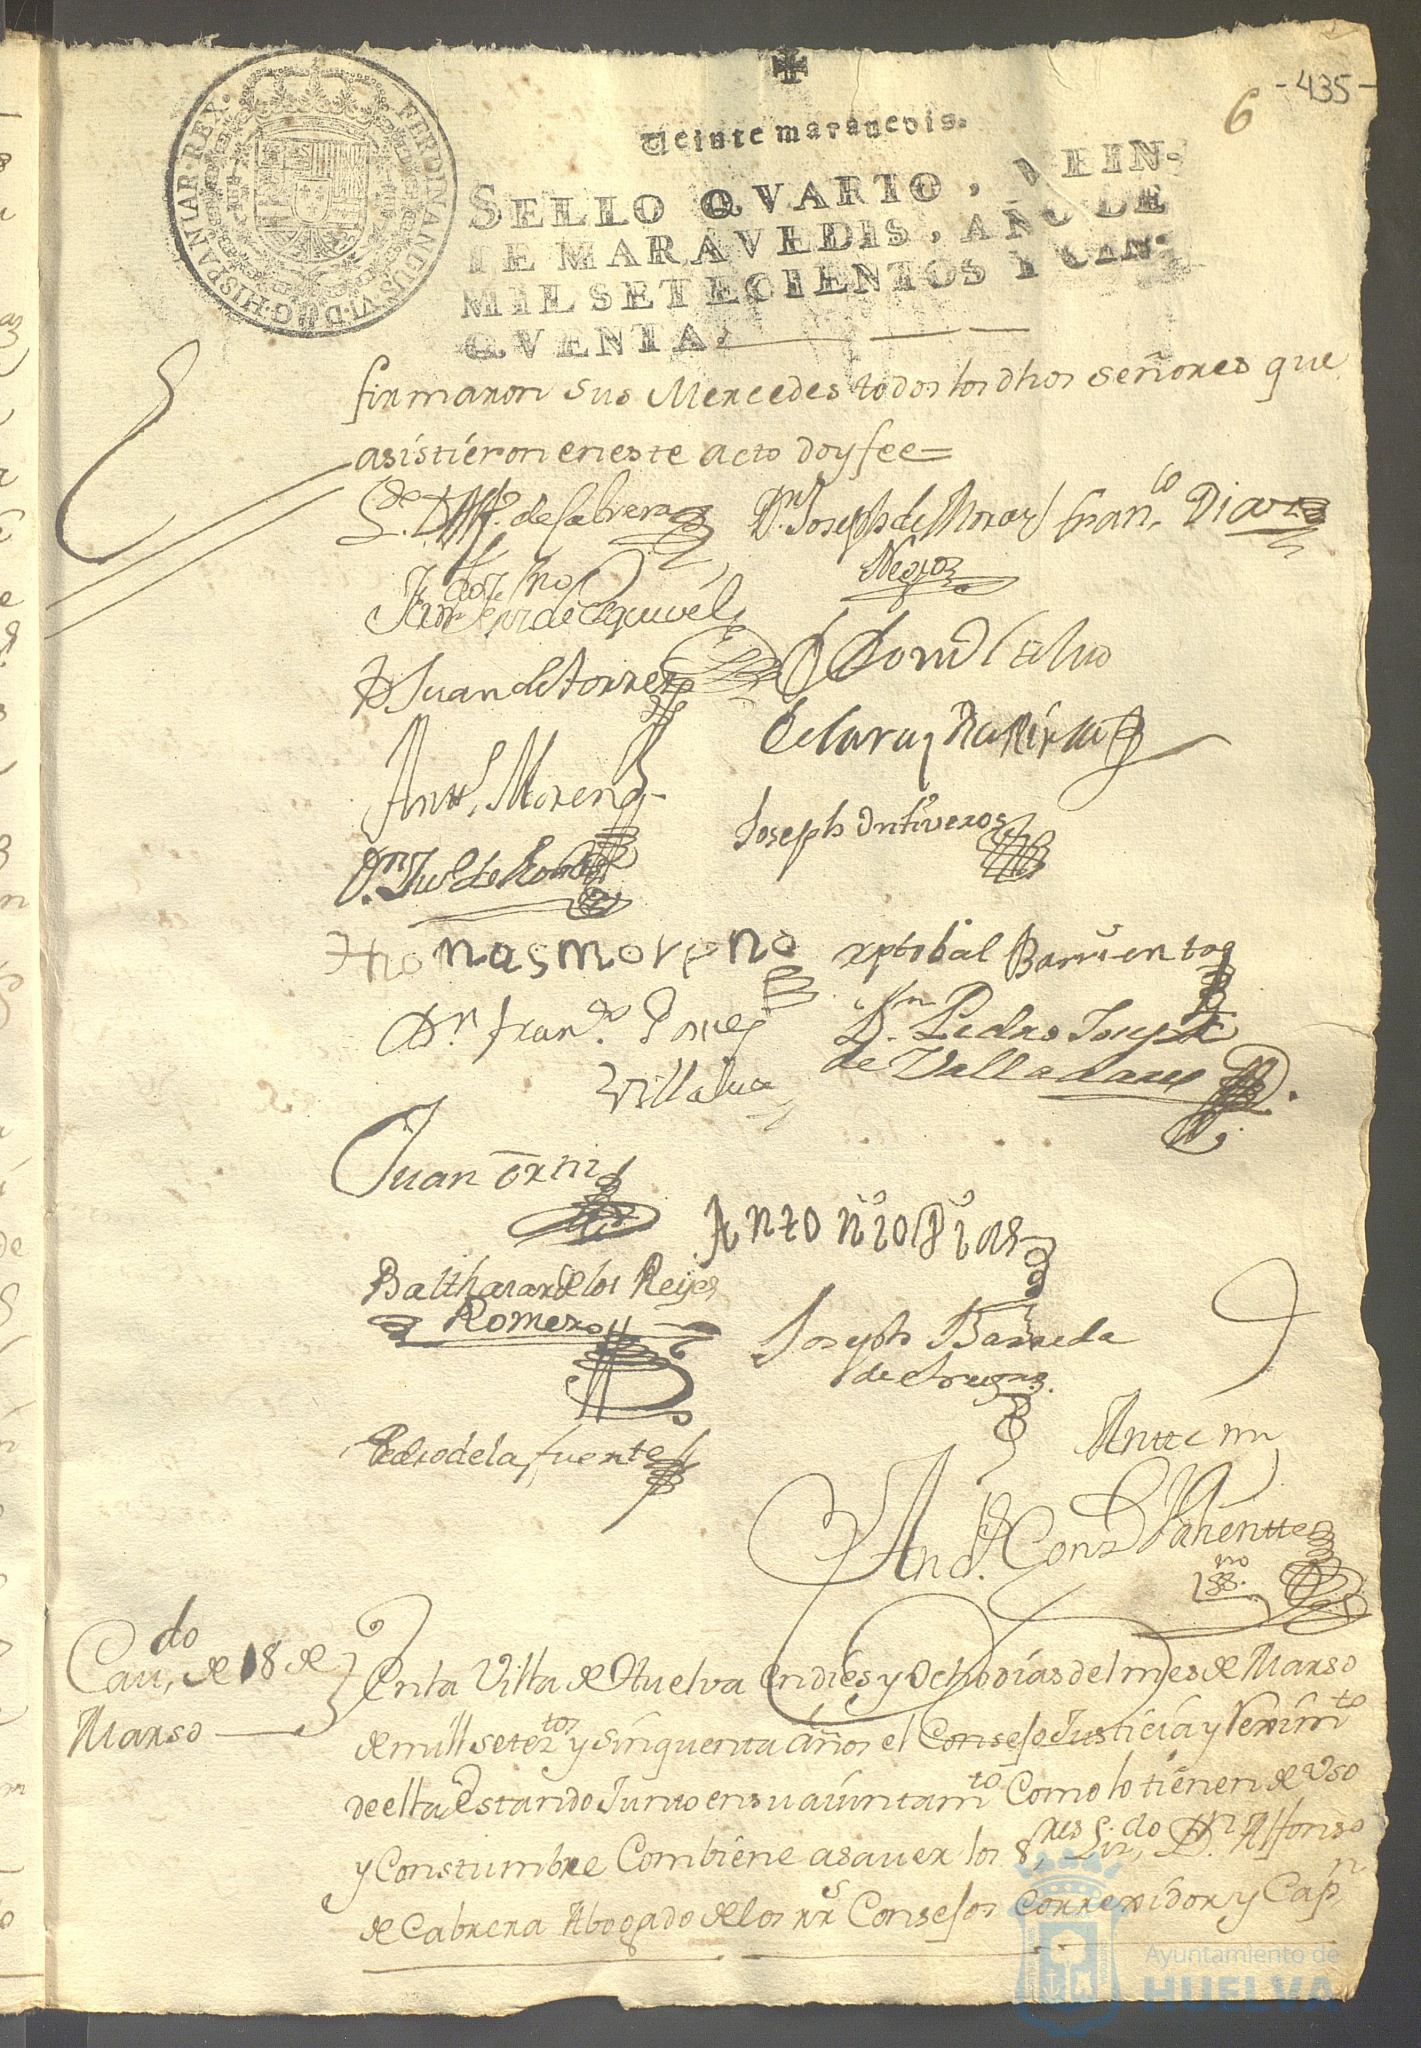 -435-
6
FERDINANDUS·VI·D·G·HISPANIAR·REX·
Veinte maravedis.
SELLO QVARTO, VEIN-
TE MARAVEDIS, AÑO DE
MIL SETECIENTOS Y CIN-
QVENTA.
firmaron sus Mercedes todos los dhos señores que
asistieron en este acto doy fee=
Lᵈᵒ. D. Alfº. de Cabrera Dⁿ. Joseph de Moras franᶜᵒ. Diaz
Negro
de Esquivel
D Juan de torres
Anttº. Moreno
Joseph Ontiveros
Thomas moreno xptobal Barrientos
Dⁿ. franᶜᵒ. Ponce Dⁿ. Pedro Joseph
Villalva de Valladares
Juan ortiz
Antonio Dias
Balthasar de los Reyes
Romero
Joseph Barreda
Pedro de la fuente
Antte mi
Andˢ. Gonz Pariente
ssⁿᵒ.
Cauᵈᵒ, de 18 de
Marso
En la Villa de Huelva en dies y Ocho dias del mes de Marso
de mill setezᵗᵒˢ y sinquenta años el Consejo Justicia y Reximᵗᵒ
de ella Estando Junto en su aiuntamᵗᵒ Como lo tienen de Uso
y Constumbre Combiene asauer los Sʳᵉˢ Lizᵈᵒ, Dⁿ. Alfonso
de Cabrera Abogado de los rrˢ Consejos Correxidor y Capⁿ
Ayuntamiento de
HUELVA